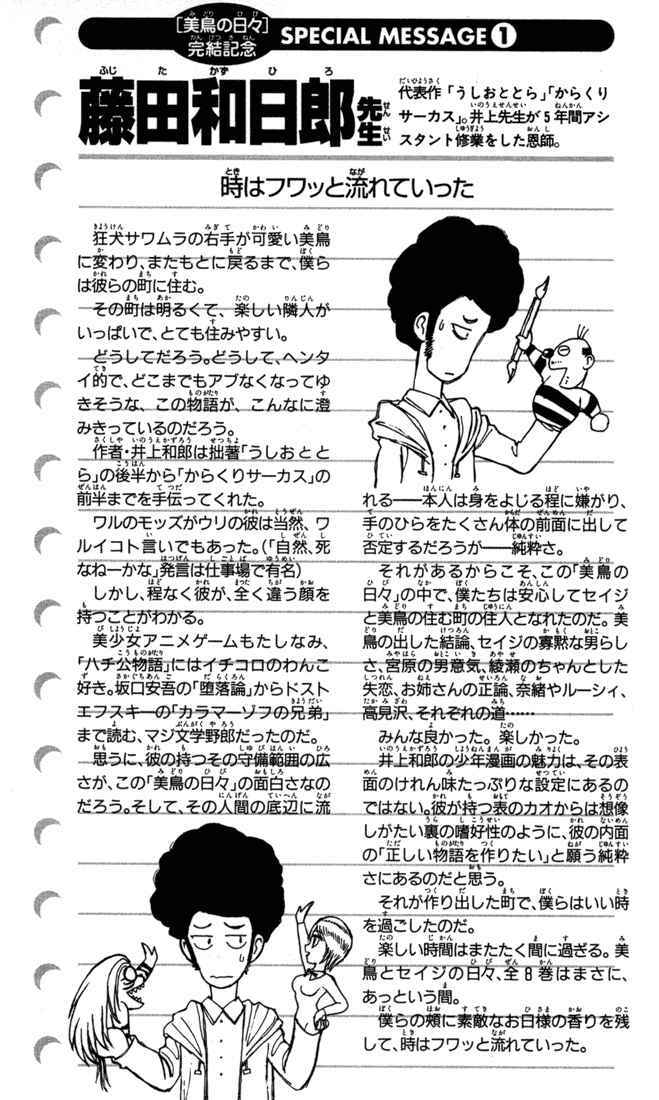 [美鳥の日々]
完結記念
SPECIAL MESSAGE❶
藤田和日郎先生
代表作「うしおととら」「からくり
サーカス」。井上先生が5年間アシ
スタント修業をした恩師。
時はフワッと流れていった
狂犬サワムラの右手が可愛い美鳥
に変わり、またもとに戻るまで、僕ら
は彼らの町に住む。
その町は明るくて、楽しい隣人が
いっぱいで、とても住みやすい。
どうしてだろう。どうして、ヘンタ
イ的で、どこまでもアブなくなってゆ
きそうな、この物語が、こんなに澄
みきっているのだろう。
作者・井上和郎は拙著「うしおとと
ら」の後半から「からくりサーカス」の
前半までを手伝ってくれた。
ワルのモッズがウリの彼は当然、ワ
ルイコト言いでもあった。(「自然、死
なねーかな」発言は仕事場で有名)
しかし、程なく彼が、全く違う顔を
持つことがわかる。
美少女アニメゲームもたしなみ、
「ハチ公物語」にはイチコロのわんこ
好き。坂口安吾の「堕落論」からドスト
エフスキーの「カラマーゾフの兄弟」
まで読む、マジ文学野郎だったのだ。
思うに、彼の持つその守備範囲の広
さが、この「美鳥の日々」の面白さなの
だろう。そして、その人間の底辺に流
れる――本人は身をよじる程に嫌がり、
手のひらをたくさん体の前面に出して
否定するだろうが――純粋さ。
それがあるからこそ、この「美鳥の
日々」の中で、僕たちは安心してセイジ
と美鳥の住む町の住人となれたのだ。美
鳥の出した結論、セイジの寡黙な男らし
さ、宮原の男意気、綾瀬のちゃんとした
失恋、お姉さんの正論、奈緒やルーシィ、
高見沢、それぞれの道……
みんな良かった。楽しかった。
井上和郎の少年漫画の魅力は、その表
面のけれん味たっぷりな設定にあるの
ではない。彼が持つ表のカオからは想像
しがたい裏の嗜好性のように、彼の内面
の「正しい物語を作りたい」と願う純粋
さにあるのだと思う。
それが作り出した町で、僕らはいい時
を過ごしたのだ。
楽しい時間はまたたく間に過ぎる。美
鳥とセイジの日々、全8巻はまさに、
あっという間。
僕らの頬に素敵なお日様の香りを残
して、時はフワッと流れていった。